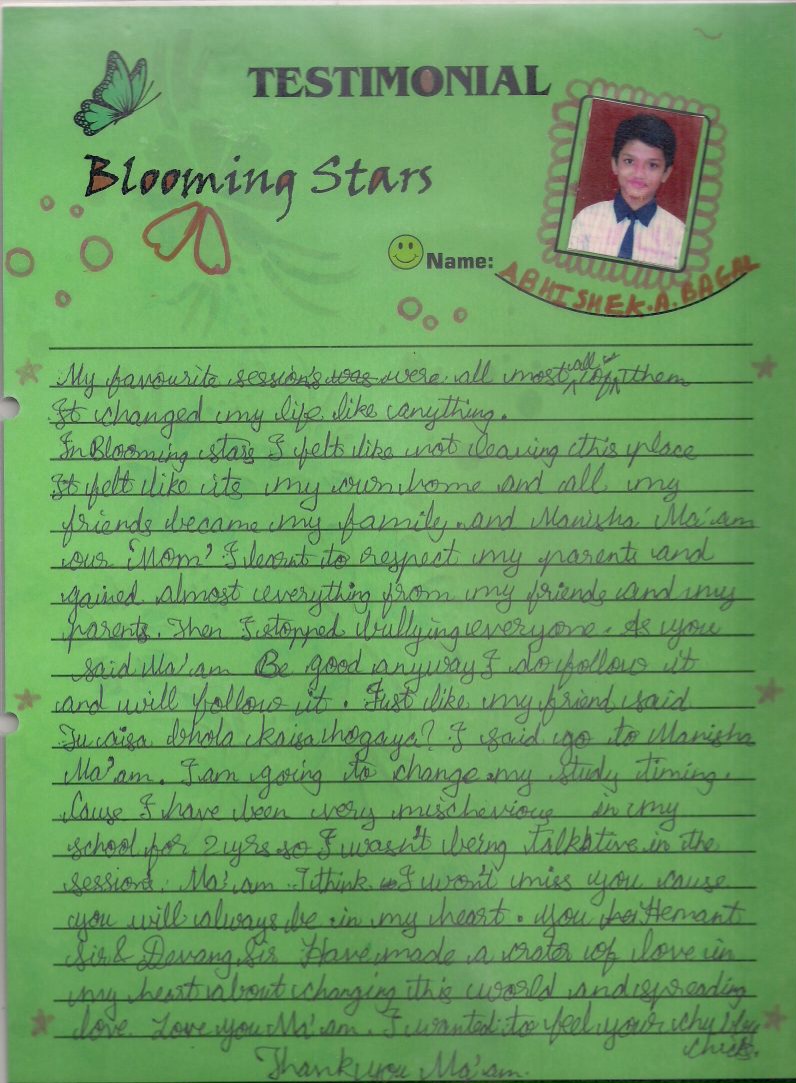 TESTIMONIAL
Blooming Stars
Name: ABHISHEK.A.BAGAL
My favourite sessions were all most all of them
It changed my life like anything.
In Blooming stars I felt like not leaving this place
It felt like its my own home and all my
friends became my family. and Manisha Ma'am
our 'Mom' I learnt to respect my parents and
gained almost everything from my friends and my
parents. Then I stopped bullying everyone. As you
said Ma'am Be good anyway I do follow it
and will follow it. Just like my friend said
Tu aisa bhola kaisa hogaya? I said go to Manisha
Ma'am. I am going to change my study timing.
Cause I have been very mischevious in my
school for 2 yrs so I wasn't being talkative in the
sessions. Ma'am I think I won't miss you cause
you will always be in my heart. You Hemant
Sir & Devang Sir Have made a crater of love in
my heart about changing this world and spreading
love. Love you Ma'am. I wanted to feel your
cheeks.
Thank you Ma'am.